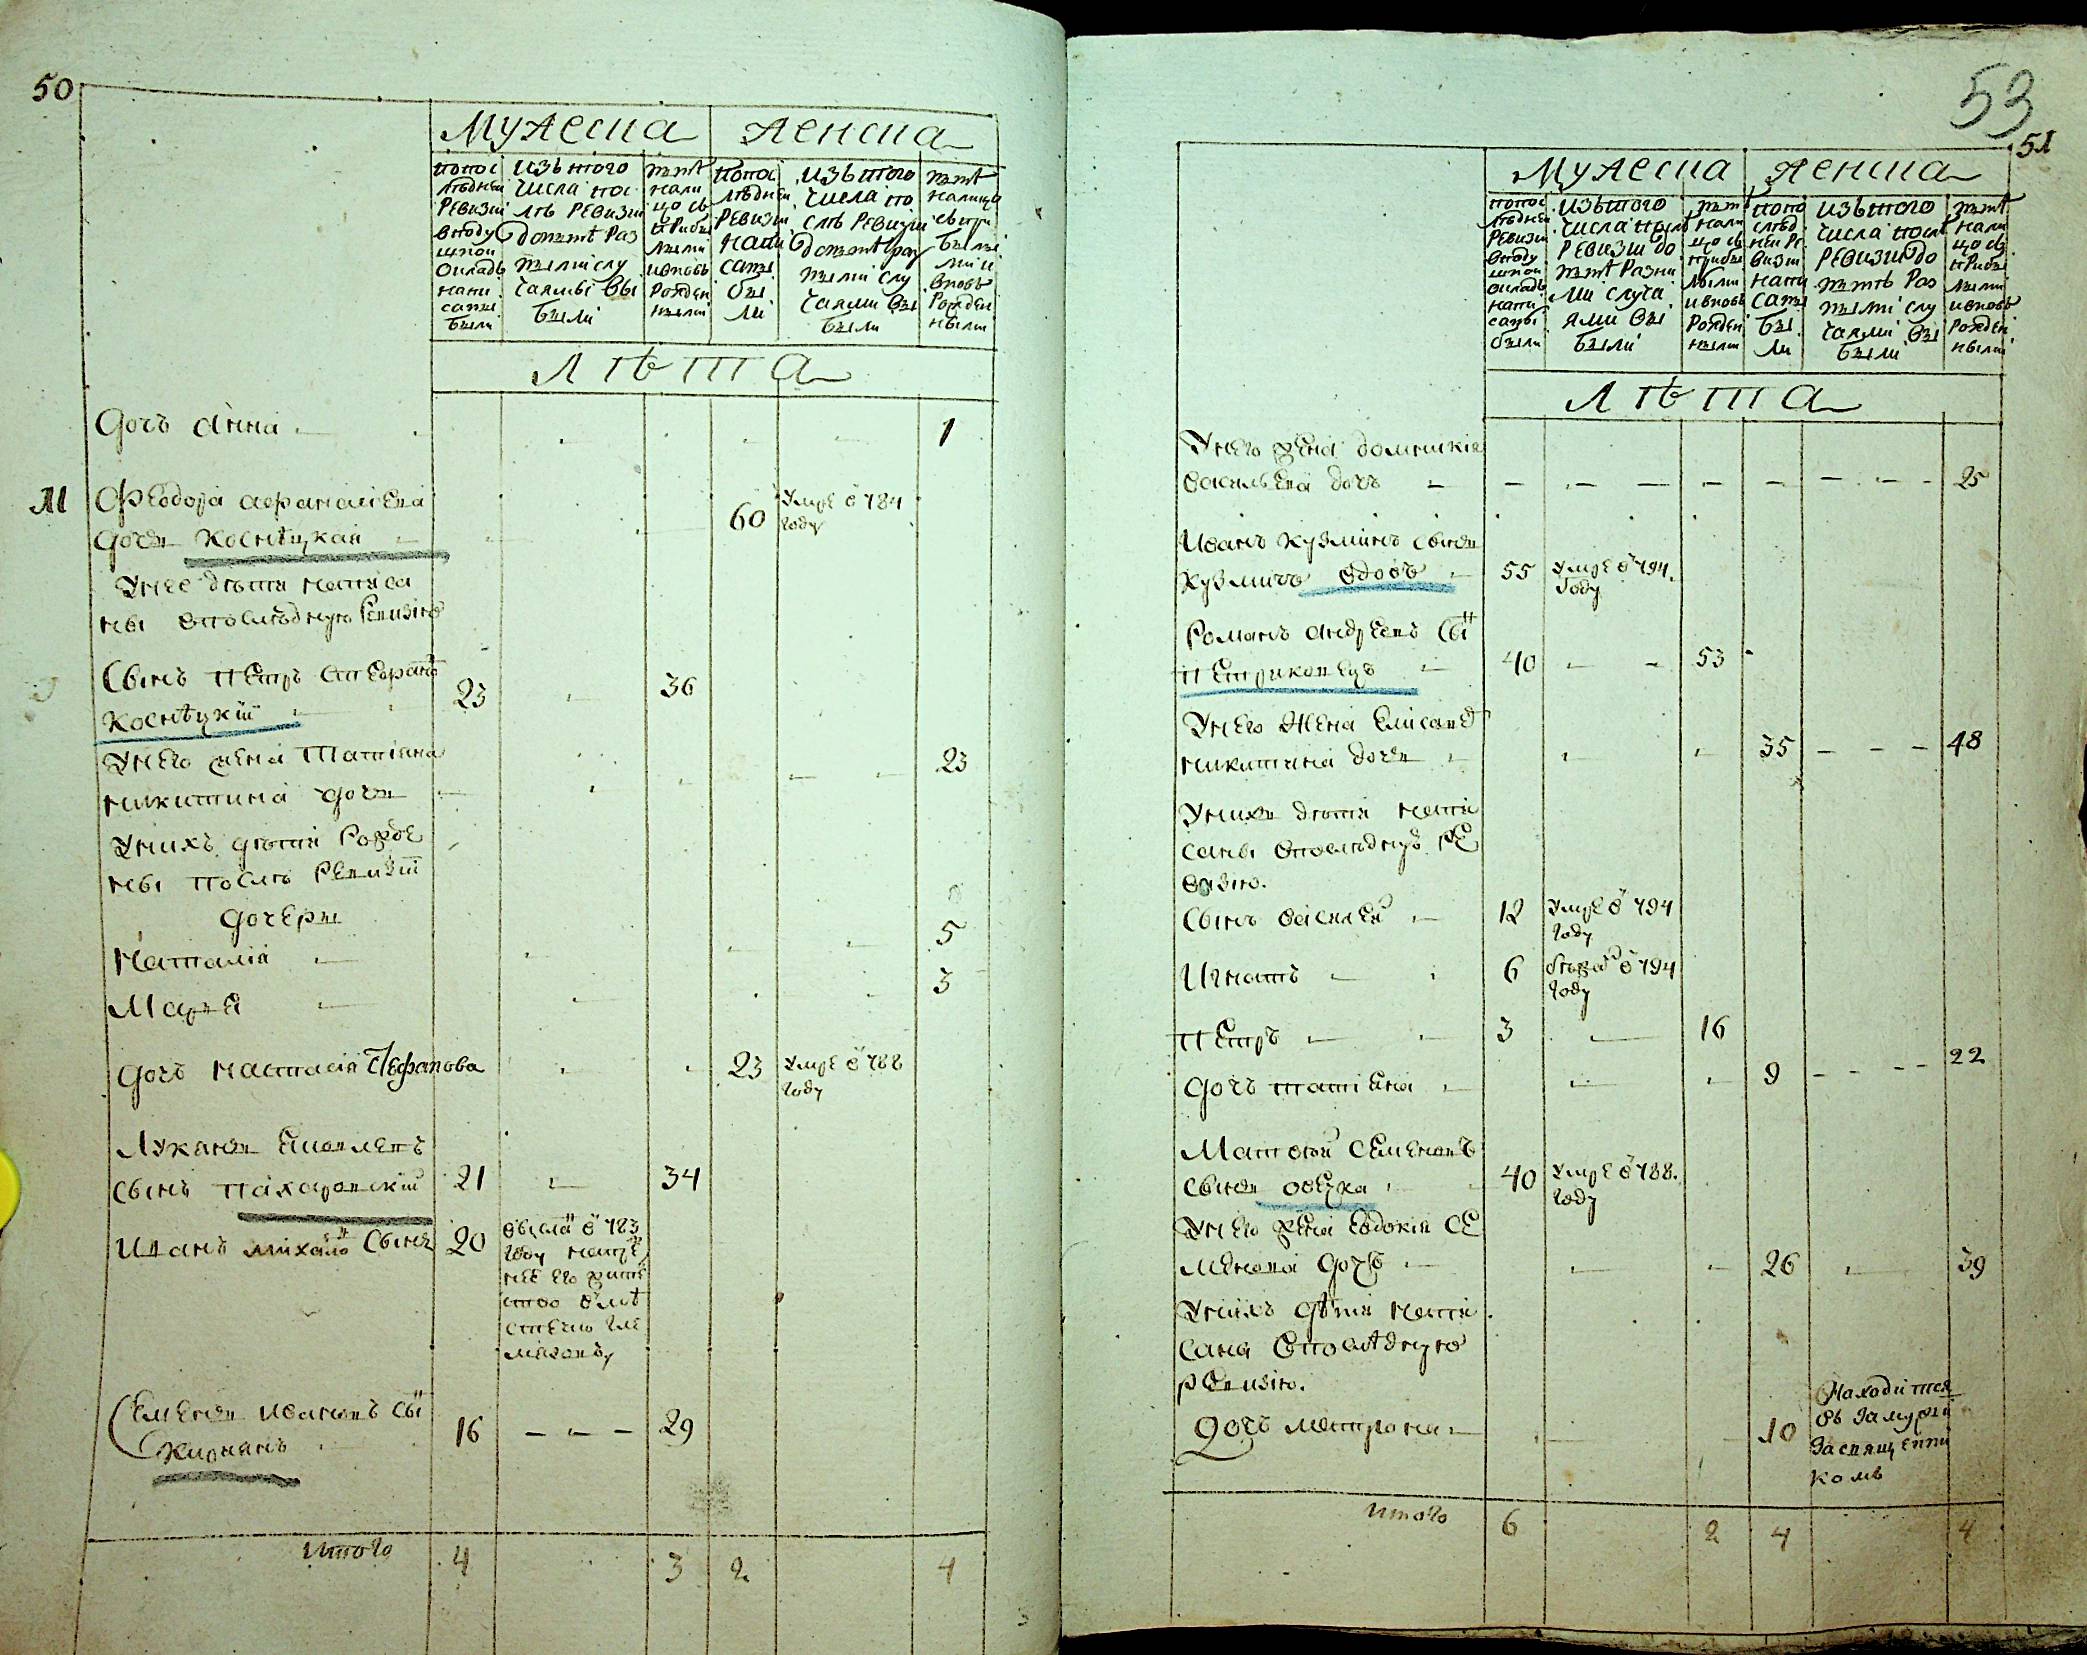 50
Мужеска Женска
попос
лѣдней
Ревизиі
вподу
шной
Окладъ
напи
саны
были
Изъ того
числа пос
лѣ Ревизиі
До тѣхъ Раз
ными слу
чаями вы
были
нали
цо съ
прибы
лыми
ивновь
Рожден
ными
попос
лѣдней
Ревизиі
Напи
саны
бы
ли
Изъ того
числа по
слѣ Ревизиі
ными слу
чаями вы
были
налицо
съ при
былы
ми и
вновь
Рожден
ными
Лѣта
Дочь Анна 1
Феодора
Дочь Коснѣцкая 60 умре в 784 году
У нее дѣти написа
ны вполѣдную Ревизию
Сынъ Петръ
Коснѣцкій 23 36
У него жена Татіяна
Никитина дочь 23
У нихъ дѣти Рожде
ны послѣ Ревизіи
Дочери
Наталія 5
Марья 3
Дочь Настасія Стефанова 23 умре в 788 году
Лукьянъ
Сынъ Пахаревскій 21 34
Иванъ Михайло Сынъ 20 783
году
его
Семенъ Ивановъ сы
Кирнянъ 16 29
Итого 4 3 2 4
53
51
Мужеска Женска
попос
лѣдней
Ревизиі
вподу
шной
окладъ
напи
саны
были
Изъ того
числа послѣ
Ревизиі до
Разны
ми случа
ями вы
были
нали
цо съ
прибы
лыми
ивновь
Рожден
ными
попо
слѣд
ней Ре
визиі
напи
саны
бы
ли
Изъ того
числа послѣ
Ревизиі до
Раз
ными слу
чаями вы
были
нали
цо съ
прибы
лыми
ивновь
Рожден
ными
Лѣта
У него жена Домникія
Васильева дочь 25
Иванъ Кузминъ Сынъ
Кузмичъ вдовъ 55 умре в 794. году
Романъ Андреевъ Сы
Петриковецъ 40 53
У него Жена Елисаве
Никитина дочь 35 48
У нихъ дѣти напи
саны вполѣдную Ре
визию.
Сынъ Василей 12 умре в 794 году
Игнатъ 6 в 794 году
Петръ 3 16
Дочь Татіяна 9 22
Матвѣй Семеновъ
Сынъ 40 умре в 788. году
У него жена Евдокія Се
менова дочь 26 39
У нихъ дѣти напи
сана вполѣднюю
Ревизию.
Дочь Матрона 10 Находится
въ замужи
за священни
комъ
Итого 6 2 4 4